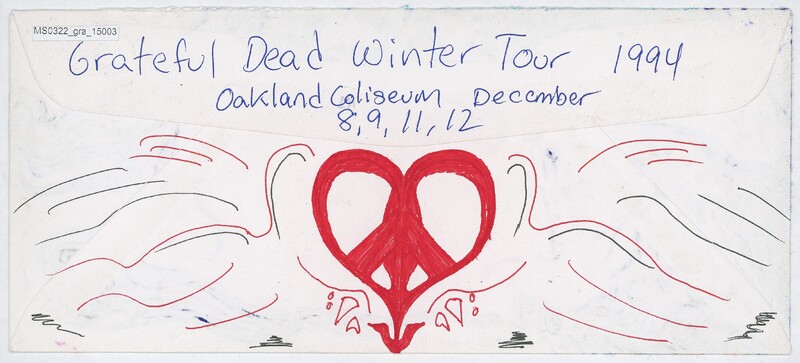 MS0322_gra_15003
Grateful Dead Winter Tour 1994
Oakland Coliseum December
8, 9, 11, 12